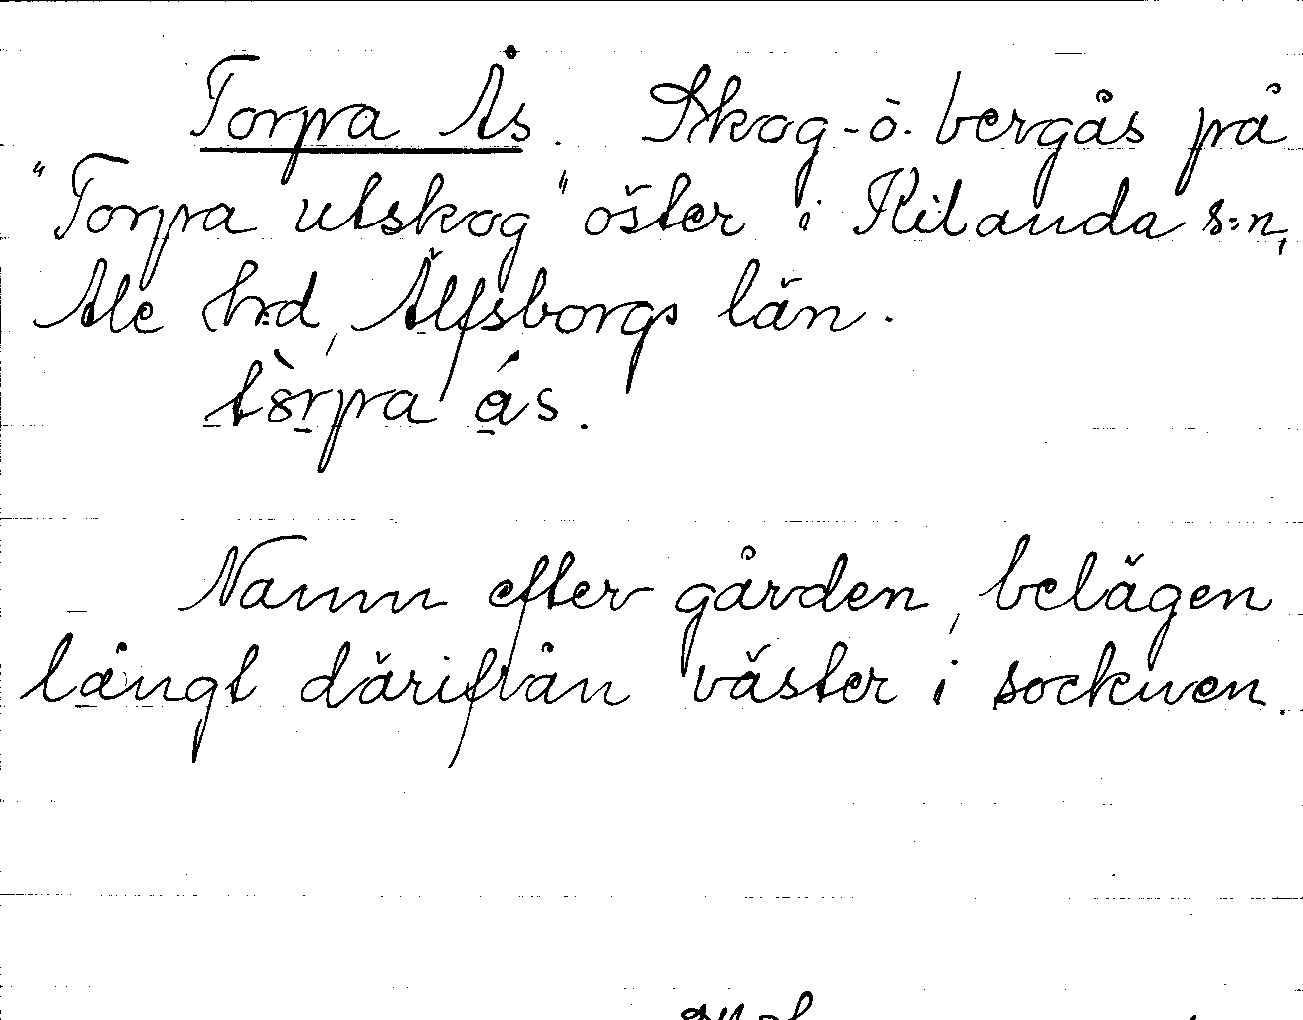 Torpa Ås. Skog- o. bergås på
"Torpa utskog" öster i Kilanda s:n,
Ale h:d, Älfsborgs län.
tòrpa ás.
Namn efter gården, belägen
långt därifrån väster i socknen.